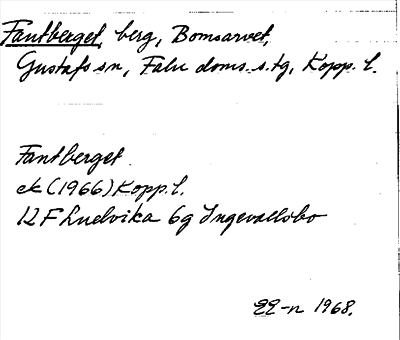 Fantberget, berg, Bomsarvet,
Gustafs sn, Falu doms. s. tg, Kopp. l.
Fantberget
ek (1966) Kopp. l.
12 F Ludvika 6g Ingevallsbo
EE-n 1968.